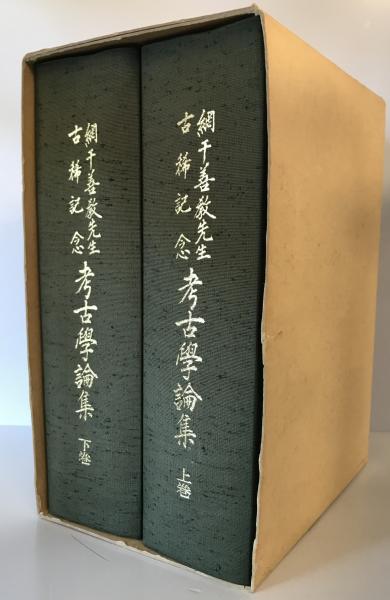 網干善教先生
古稀記念
考古學論集
上巻
網干善教先生
古稀記念
考古學論集
下巻